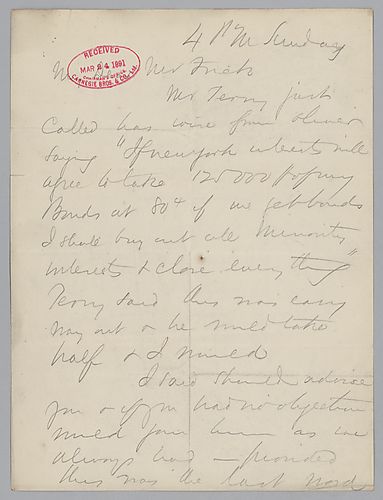 4 PM Sunday
RECEIVED
MAR 24 1891
CHAIRMAN'S OFFICE
CARNEGIE BROS. & CO., Ltd.
My Mr Frick
Mr Terry just
Called has wire from Oliver
saying "If New York interests will
agree to take 125000 of my
Bonds at 80¢ if we get bonds
I shall buy out all Minority
interests & close everything"
Terry said this was easy
way out & he would take
half & I would
I said should advise
you & if you had no objection
would join him as we
always had — provided
this was the last word